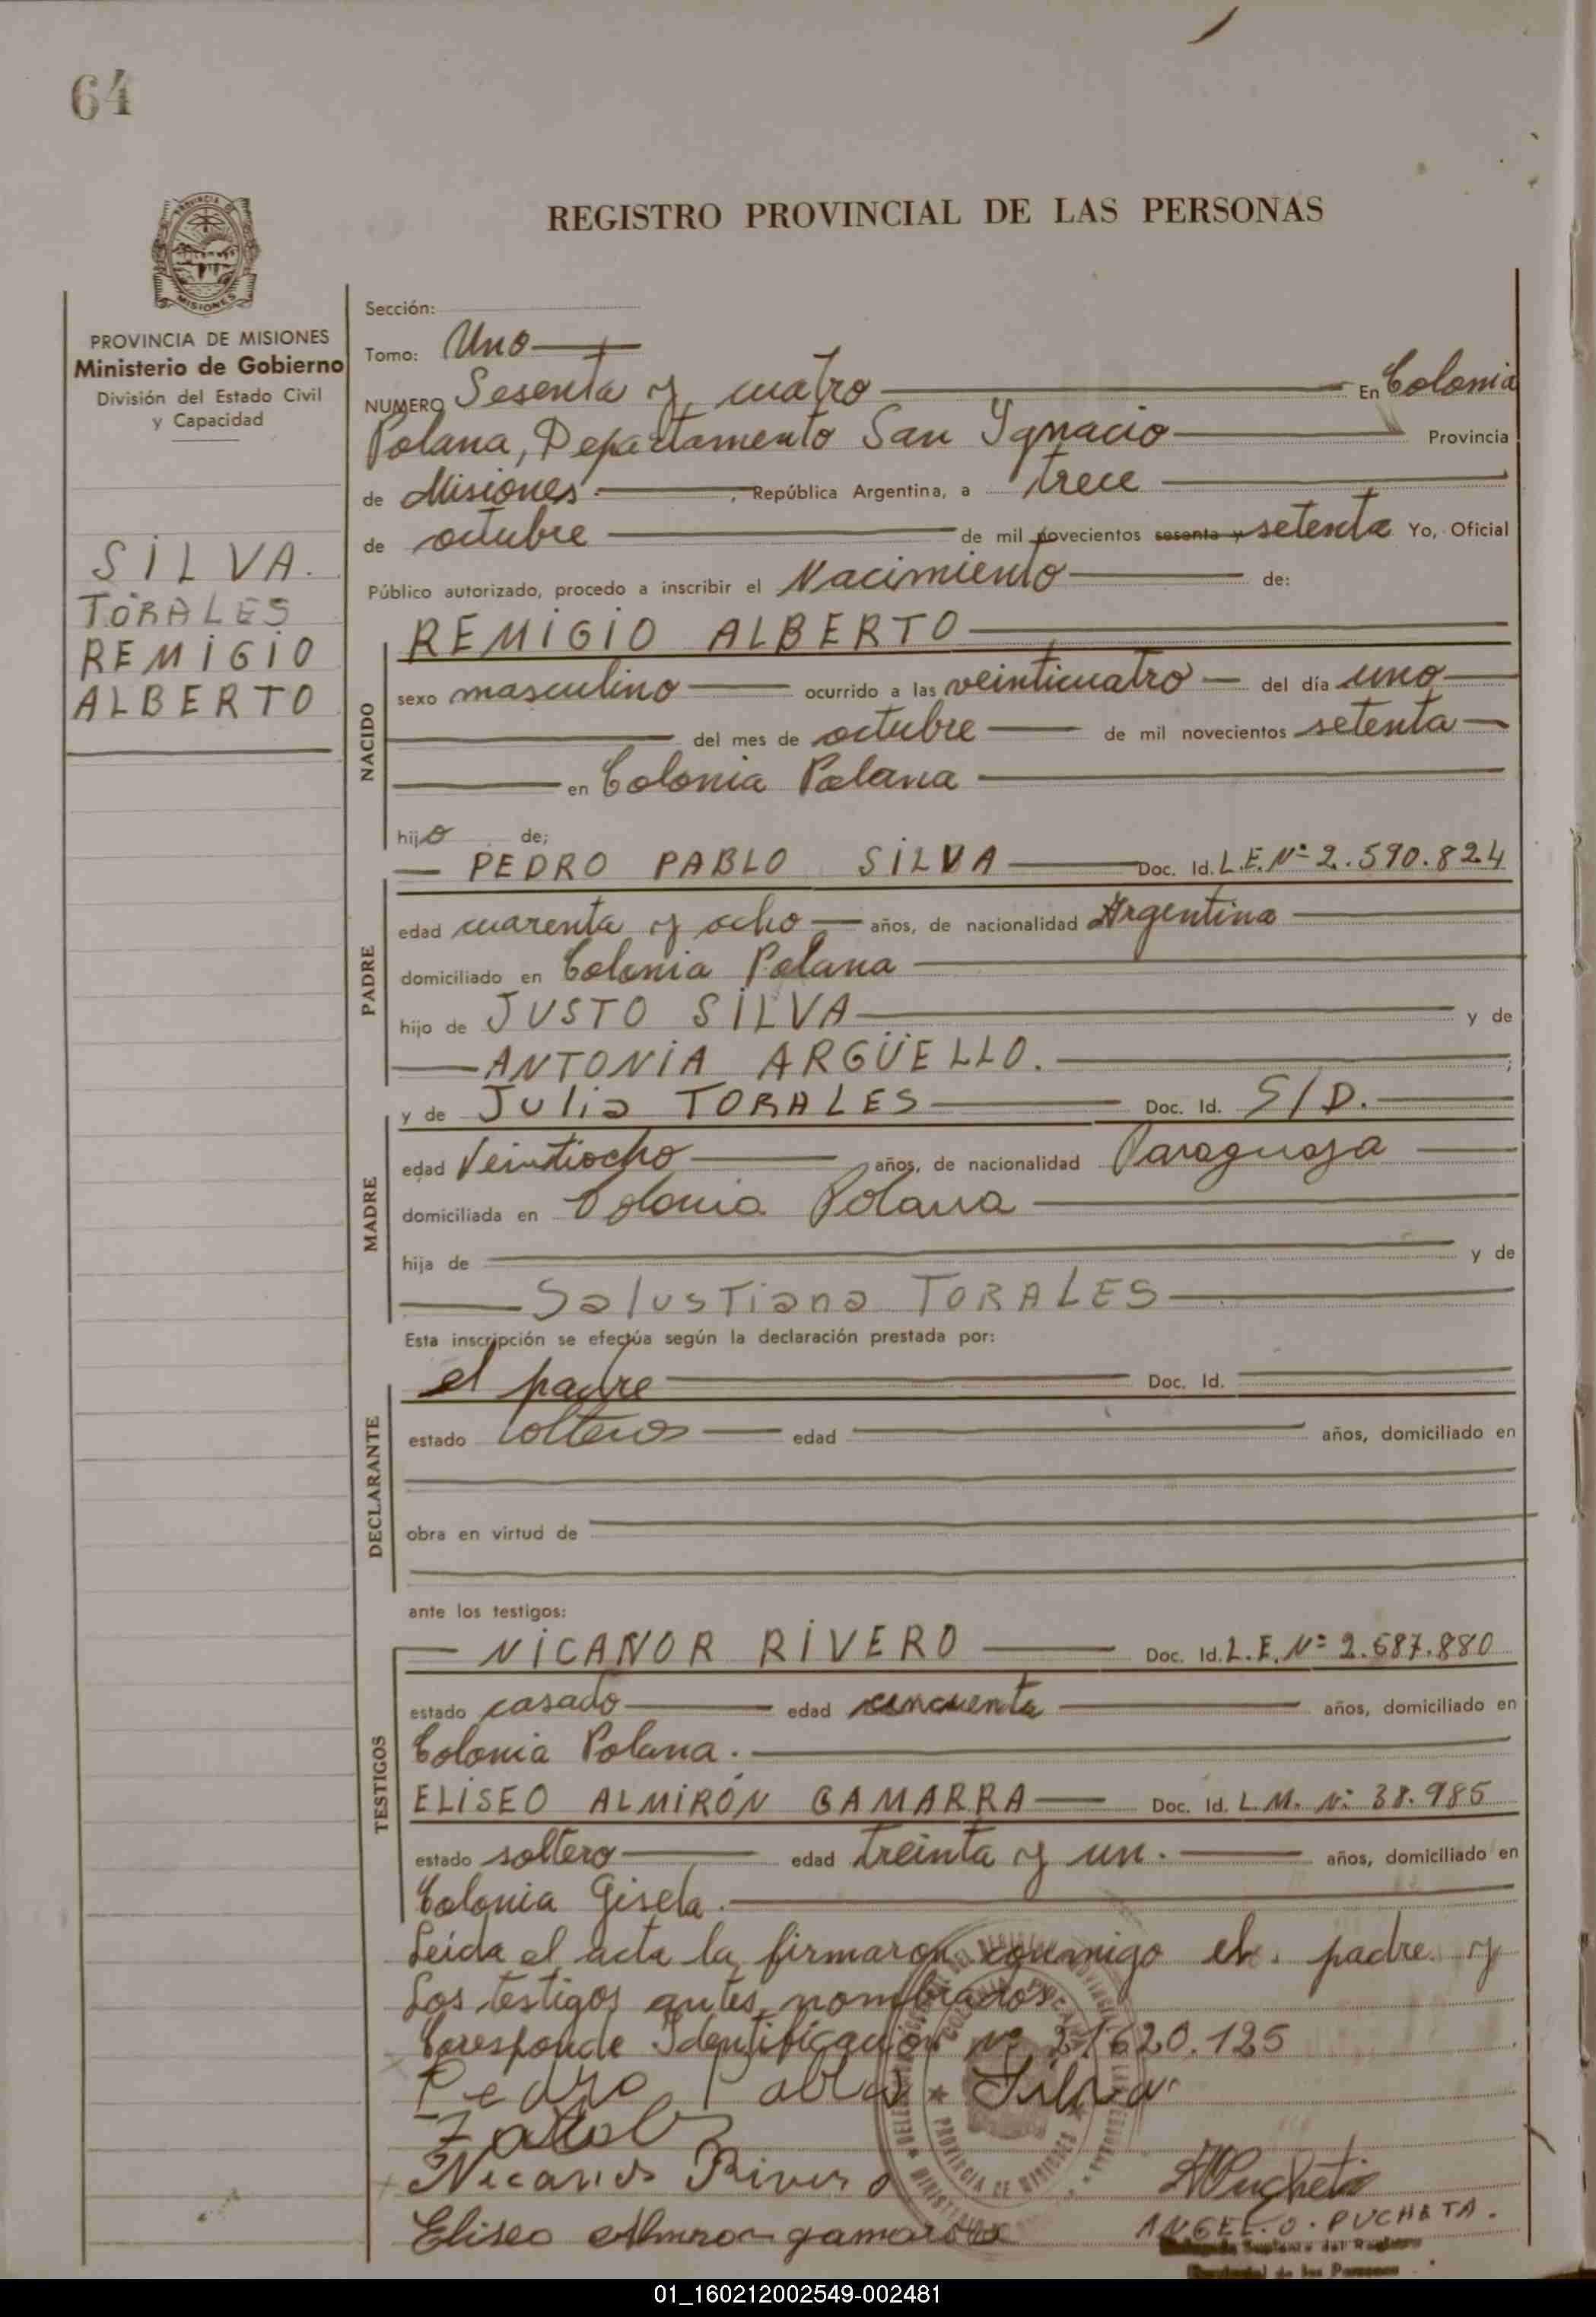 64
REGISTRO PROVINCIAL DE LAS PERSONAS
PROVINCIA DE MISIONES
Ministerio de Gobierno
División del Estado Civil
y Capacidad
SILVA.
TORALES
REMIGIO
ALBERTO
Sección:
Tomo: Uno
NUMERO Sesenta y cuatro En Colonia
Polana, Departamento San Ygnacio Provincia
de Misiones. República Argentina, a trece
de octubre de mil novecientos sesenta y setenta Yo, Oficial
Público autorizado, procedo a inscribir el Nacimiento de:
REMIGIO ALBERTO
NACIDO
sexo masculino ocurrido a las veinticuatro del día uno
del mes de octubre de mil novecientos setenta
en Colonia Polana
hijo de;
PEDRO PABLO SILVA Doc. Id. L.E. Nº 2.590.824
PADRE
edad cuarenta y ocho años, de nacionalidad Argentina
domiciliado en Colonia Polana
hijo de JUSTO SILVA y de
ANTONIA ARGÜELLO. ;
MADRE
y de Julia TORALES Doc. Id. S/D.
edad Veintiocho años, de nacionalidad Paraguaya
domiciliada en Colonia Polana
hija de y de
Salustiana TORALES
Esta inscripción se efectúa según la declaración prestada por:
DECLARANTE
el padre Doc. Id.
estado soltero edad años, domiciliado en
obra en virtud de
ante los testigos:
TESTIGOS
NICANOR RIVERO Doc. Id. L.E. Nº 2.687.880
estado casado edad cincuenta años, domiciliado en
Colonia Polana.
ELISEO ALMIRÓN GAMARRA Doc. Id. L.M. Nº 38.985
estado soltero edad treinta y un. años, domiciliado en
Colonia Gisela.
Leída el acta la firmaron conmigo el. padre y
Los testigos antes nombrados.
Coresponde Identificación nº 21620.125
Pedro Pablo Silva
Nicanor Rivero
Eliseo Almiron gamarra
ANGEL. O. PUCHETA.
Suplente del Registro
Provincial de las Personas
PROVINCIA DE MISIONES
01_160212002549-002481